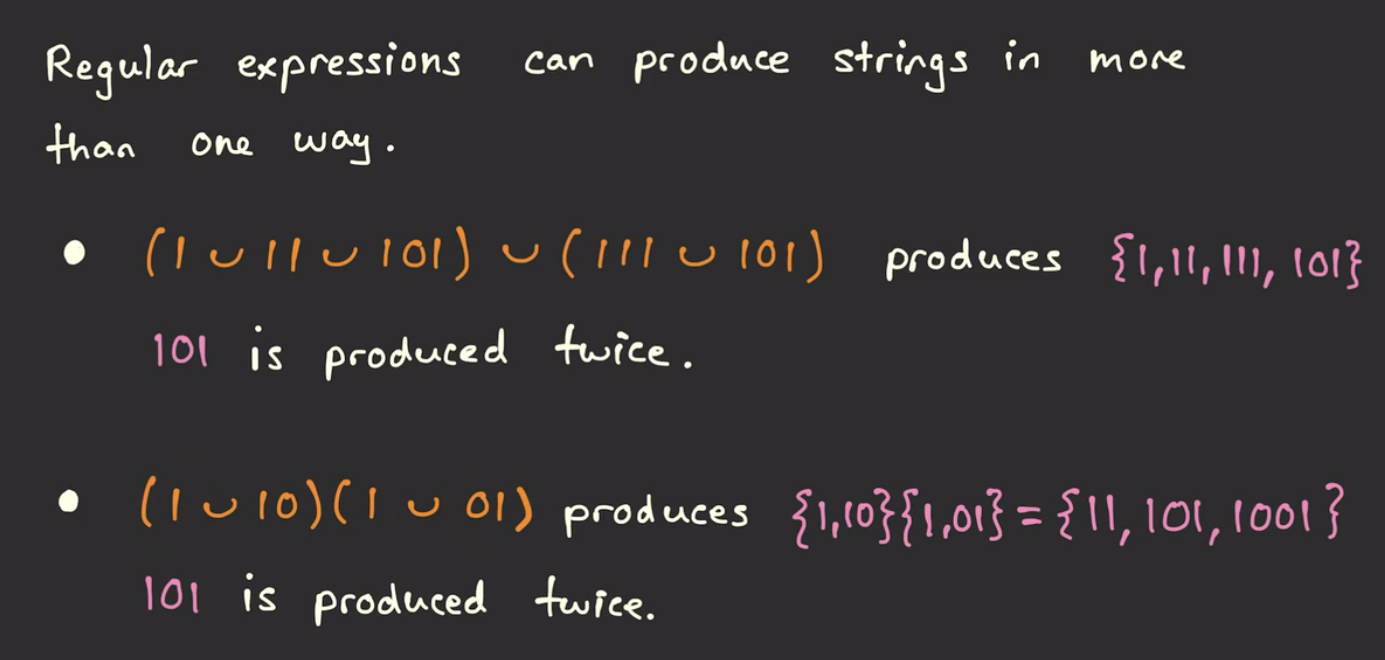 Regular expressions can produce strings in more
than one way.
• (1 ∪ 11 ∪ 101) ∪ (111 ∪ 101) produces {1,11,111,101}
101 is produced twice.
• (1 ∪ 10)(1 ∪ 01) produces {1,10}{1,01} = {11,101,1001}
101 is produced twice.